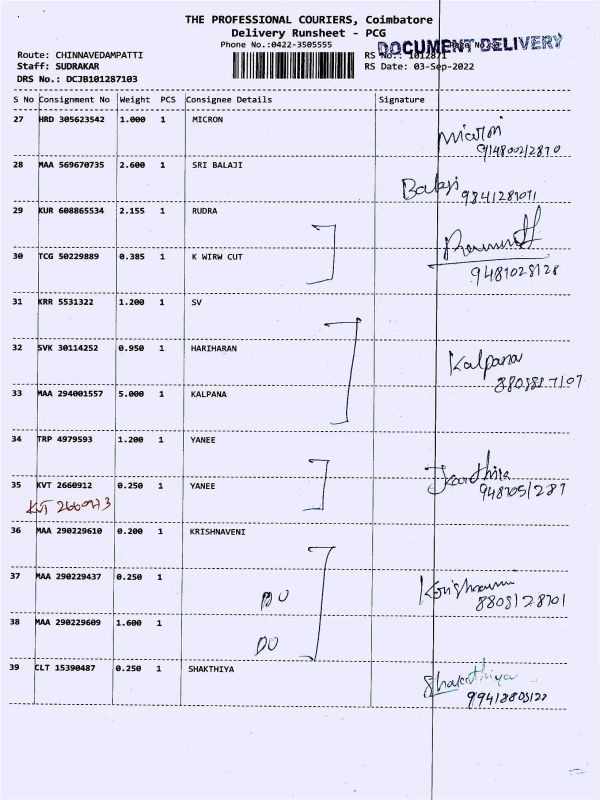 THE PROFESSIONAL COURIERS, Coimbatore
Delivery Runsheet - PCG
Phone No.:0422-3505555
DOCUMENT DELIVERY
Route: CHINNAVEDAMPATTI
RS No.: 1012871
Staff: SUDRAKAR
RS Date: 03-Sep-2022
DRS No.: DCJB101287103
S No Consignment No Weight PCS Consignee Details Signature
27 HRD 305623542 1.000 1 MICRON
Micron
28 MAA 569670735 2.600 1 SRI BALAJI
Balaji
29 KUR 608865534 2.155 1 RUDRA
30 TCG 50229889 0.385 1 K WIRW CUT
9481028128
31 KRR 5531322 1.200 1 SV
32 SVK 30114252 0.950 1 HARIHARAN
Kalpana
33 MAA 294001557 5.000 1 KALPANA
34 TRP 4979593 1.200 1 YANEE
35 KVT 2660912 0.250 1 YANEE
9487051287
KVT 2660973
36 MAA 290229610 0.200 1 KRISHNAVENI
37 MAA 290229437 0.250 1
DO
8808128701
38 MAA 290229609 1.600 1
DO
39 CLT 15390487 0.250 1 SHAKTHIYA
Shakthiya